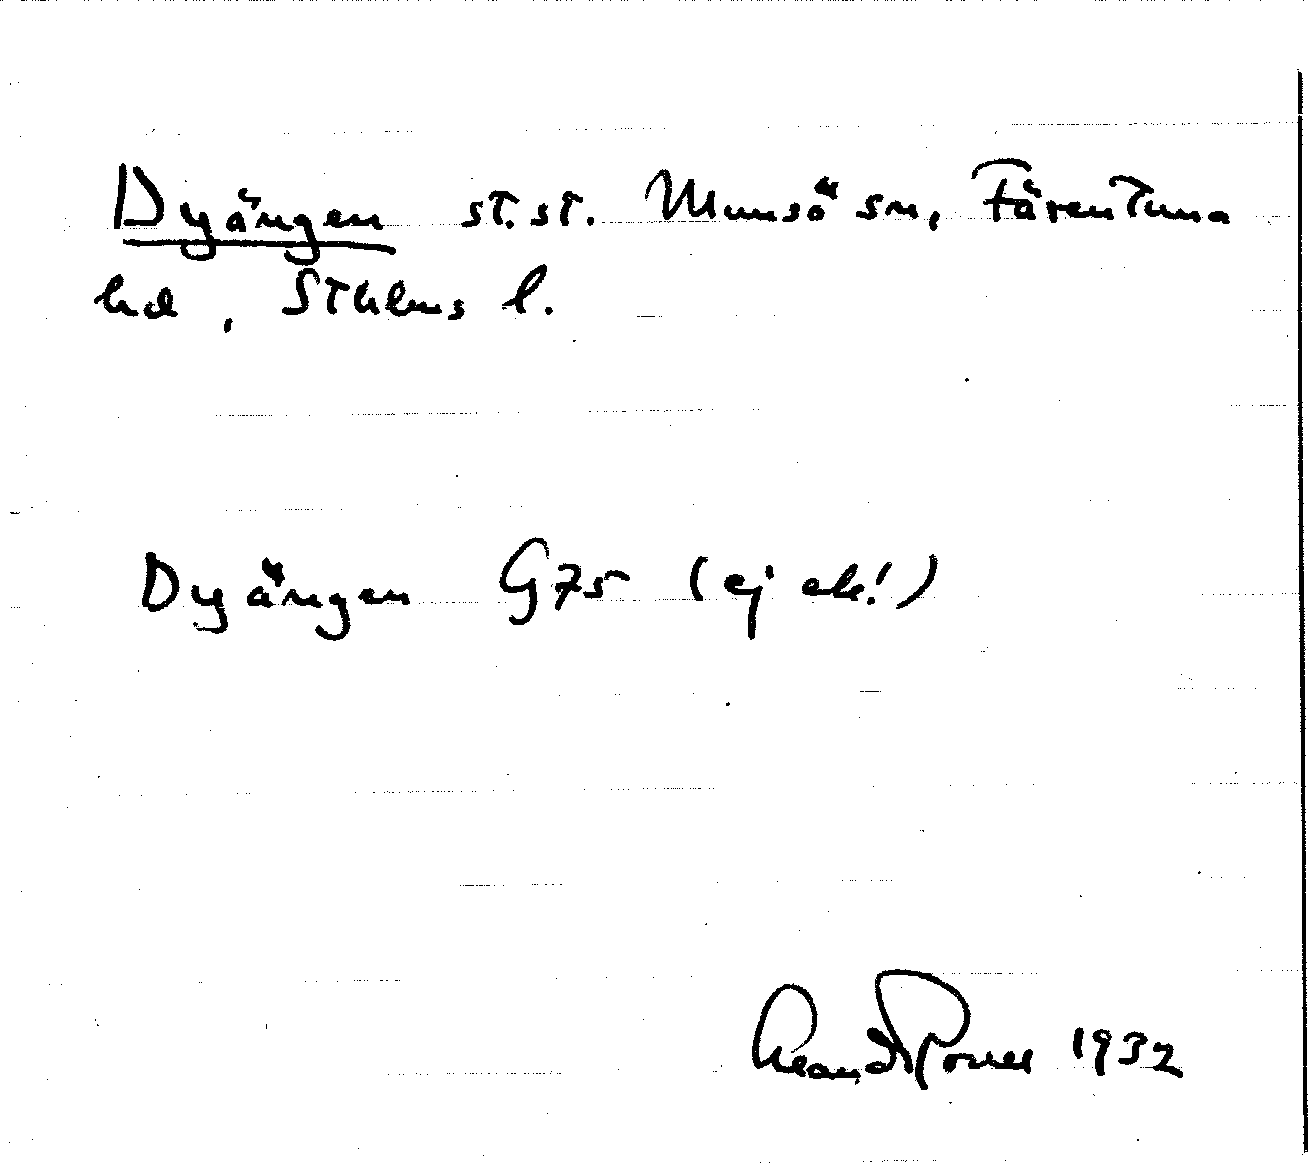 Dyängen st.st. Munsö sn, Färentuna
hd, Sthlms l.
Dyängen G75 (ej ek!)
1932